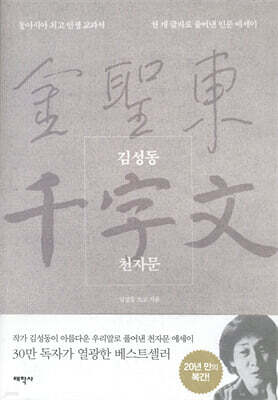 동아시아 최고 인생 교과서
천 개 글자로 풀어낸 인문 에세이
金聖東
김성동
千字文
천자문
김성동 쓰고 지음
작가 김성동이 아름다운 우리말로 풀어낸 천자문 에세이
30만 독자가 열광한 베스트셀러
20년 만의
복간!
태학사
YES24